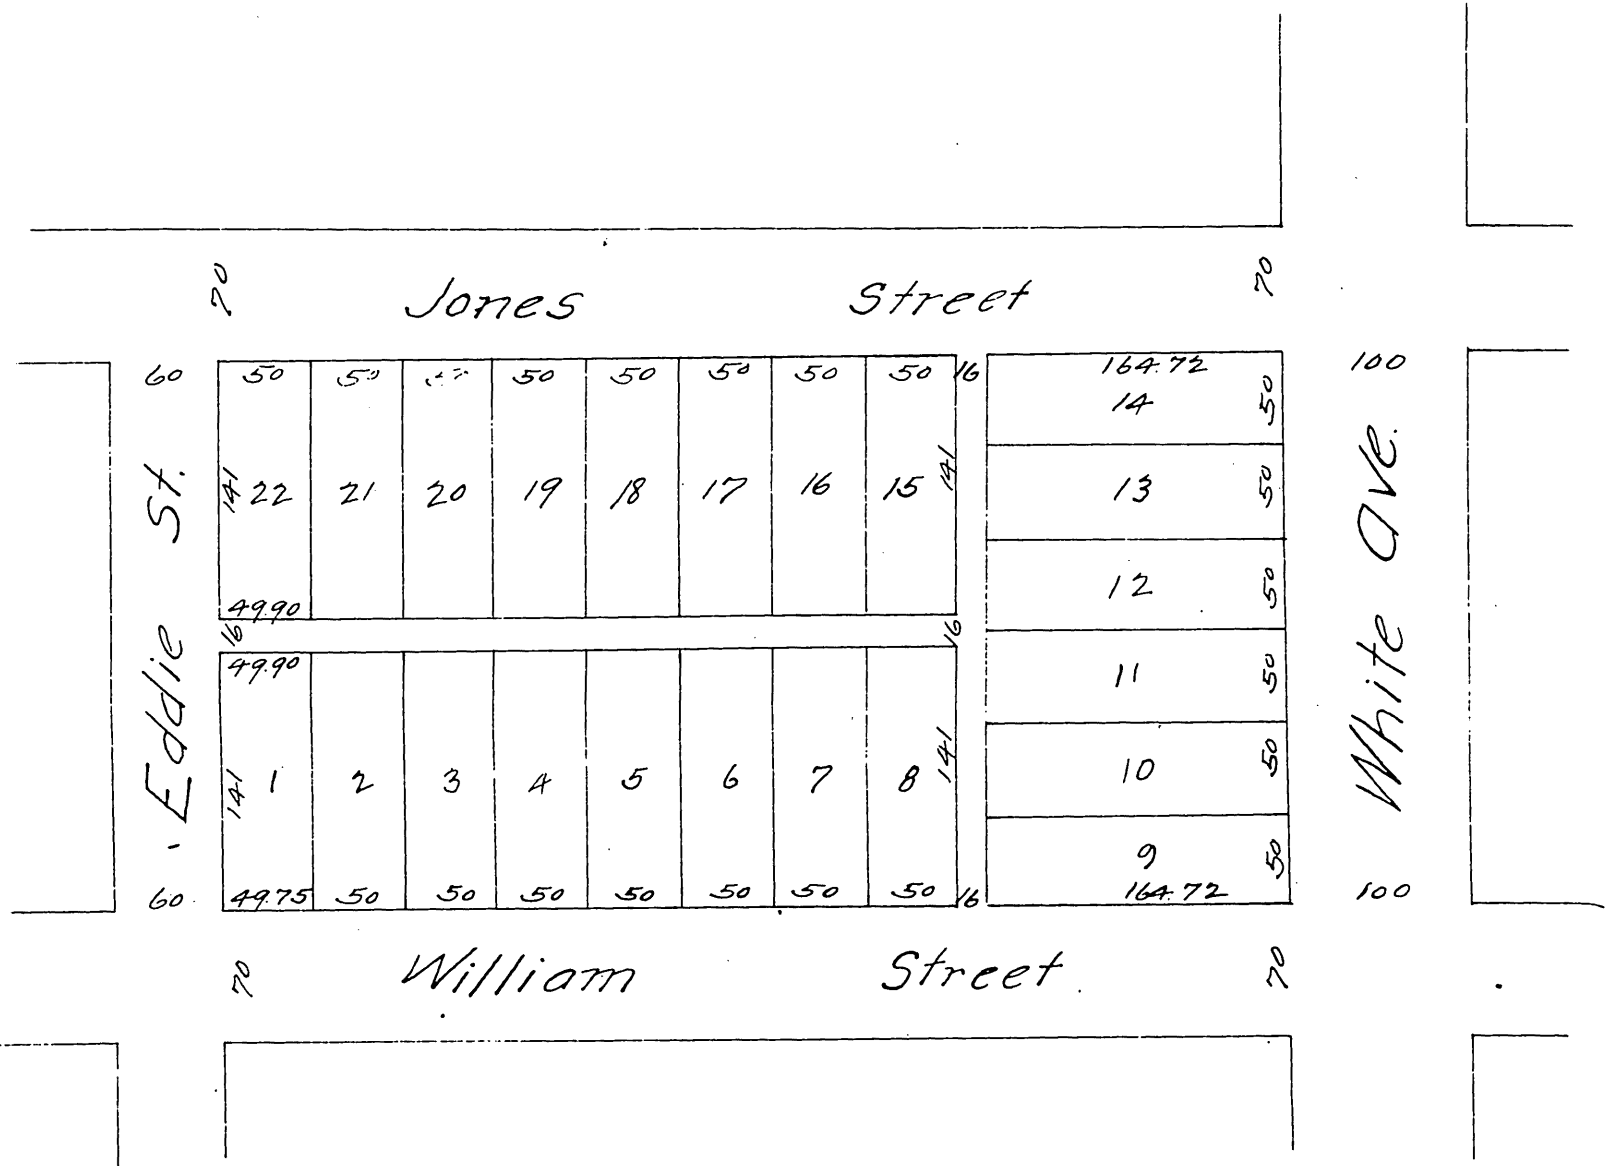 70 Jones Street 70
60 50 50 50 50 50 50 50 16 164.72 100
14 50
141 22 21 20 19 18 17 16 15 141 13 50
12 50
49.90
16 16
49.90
11 50
Eddie St.
White Ave.
141 1 2 3 4 5 6 7 8 141 10 50
9 50
60 49.75 50 50 50 50 50 50 50 16 164.72 100
70 William Street 70